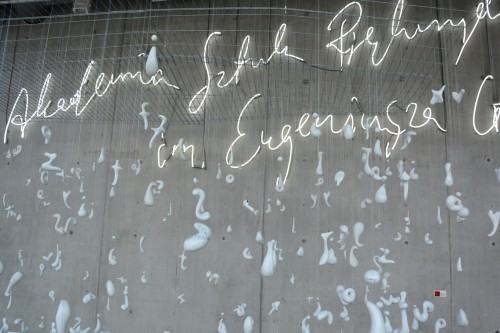 Akademia Sztuk Pięknych
im Eugeniusza